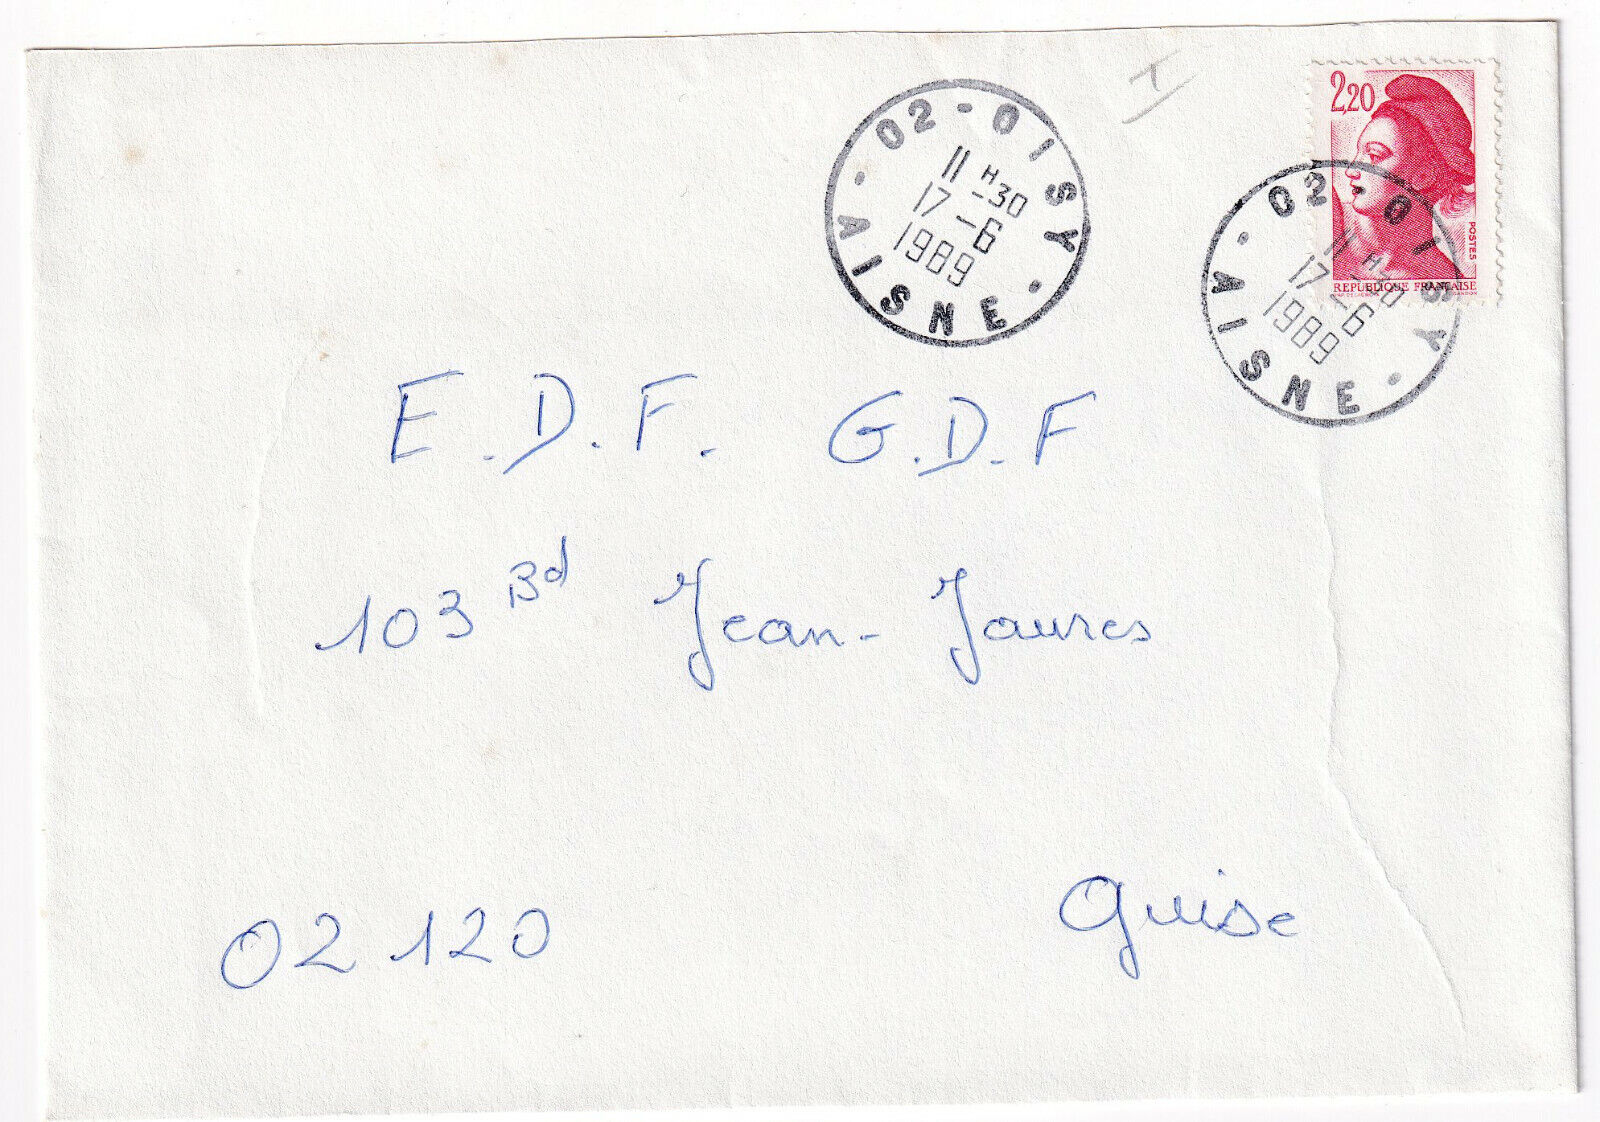 02-OISY
11H30
17-6
1989
AISNE
2,20
POSTES
REPUBLIQUE FRANÇAISE
02-OISY
11H30
17-6
1989
AISNE
E.D.F. G.D.F
103 Bd Jean-Jaures
02120 Guise